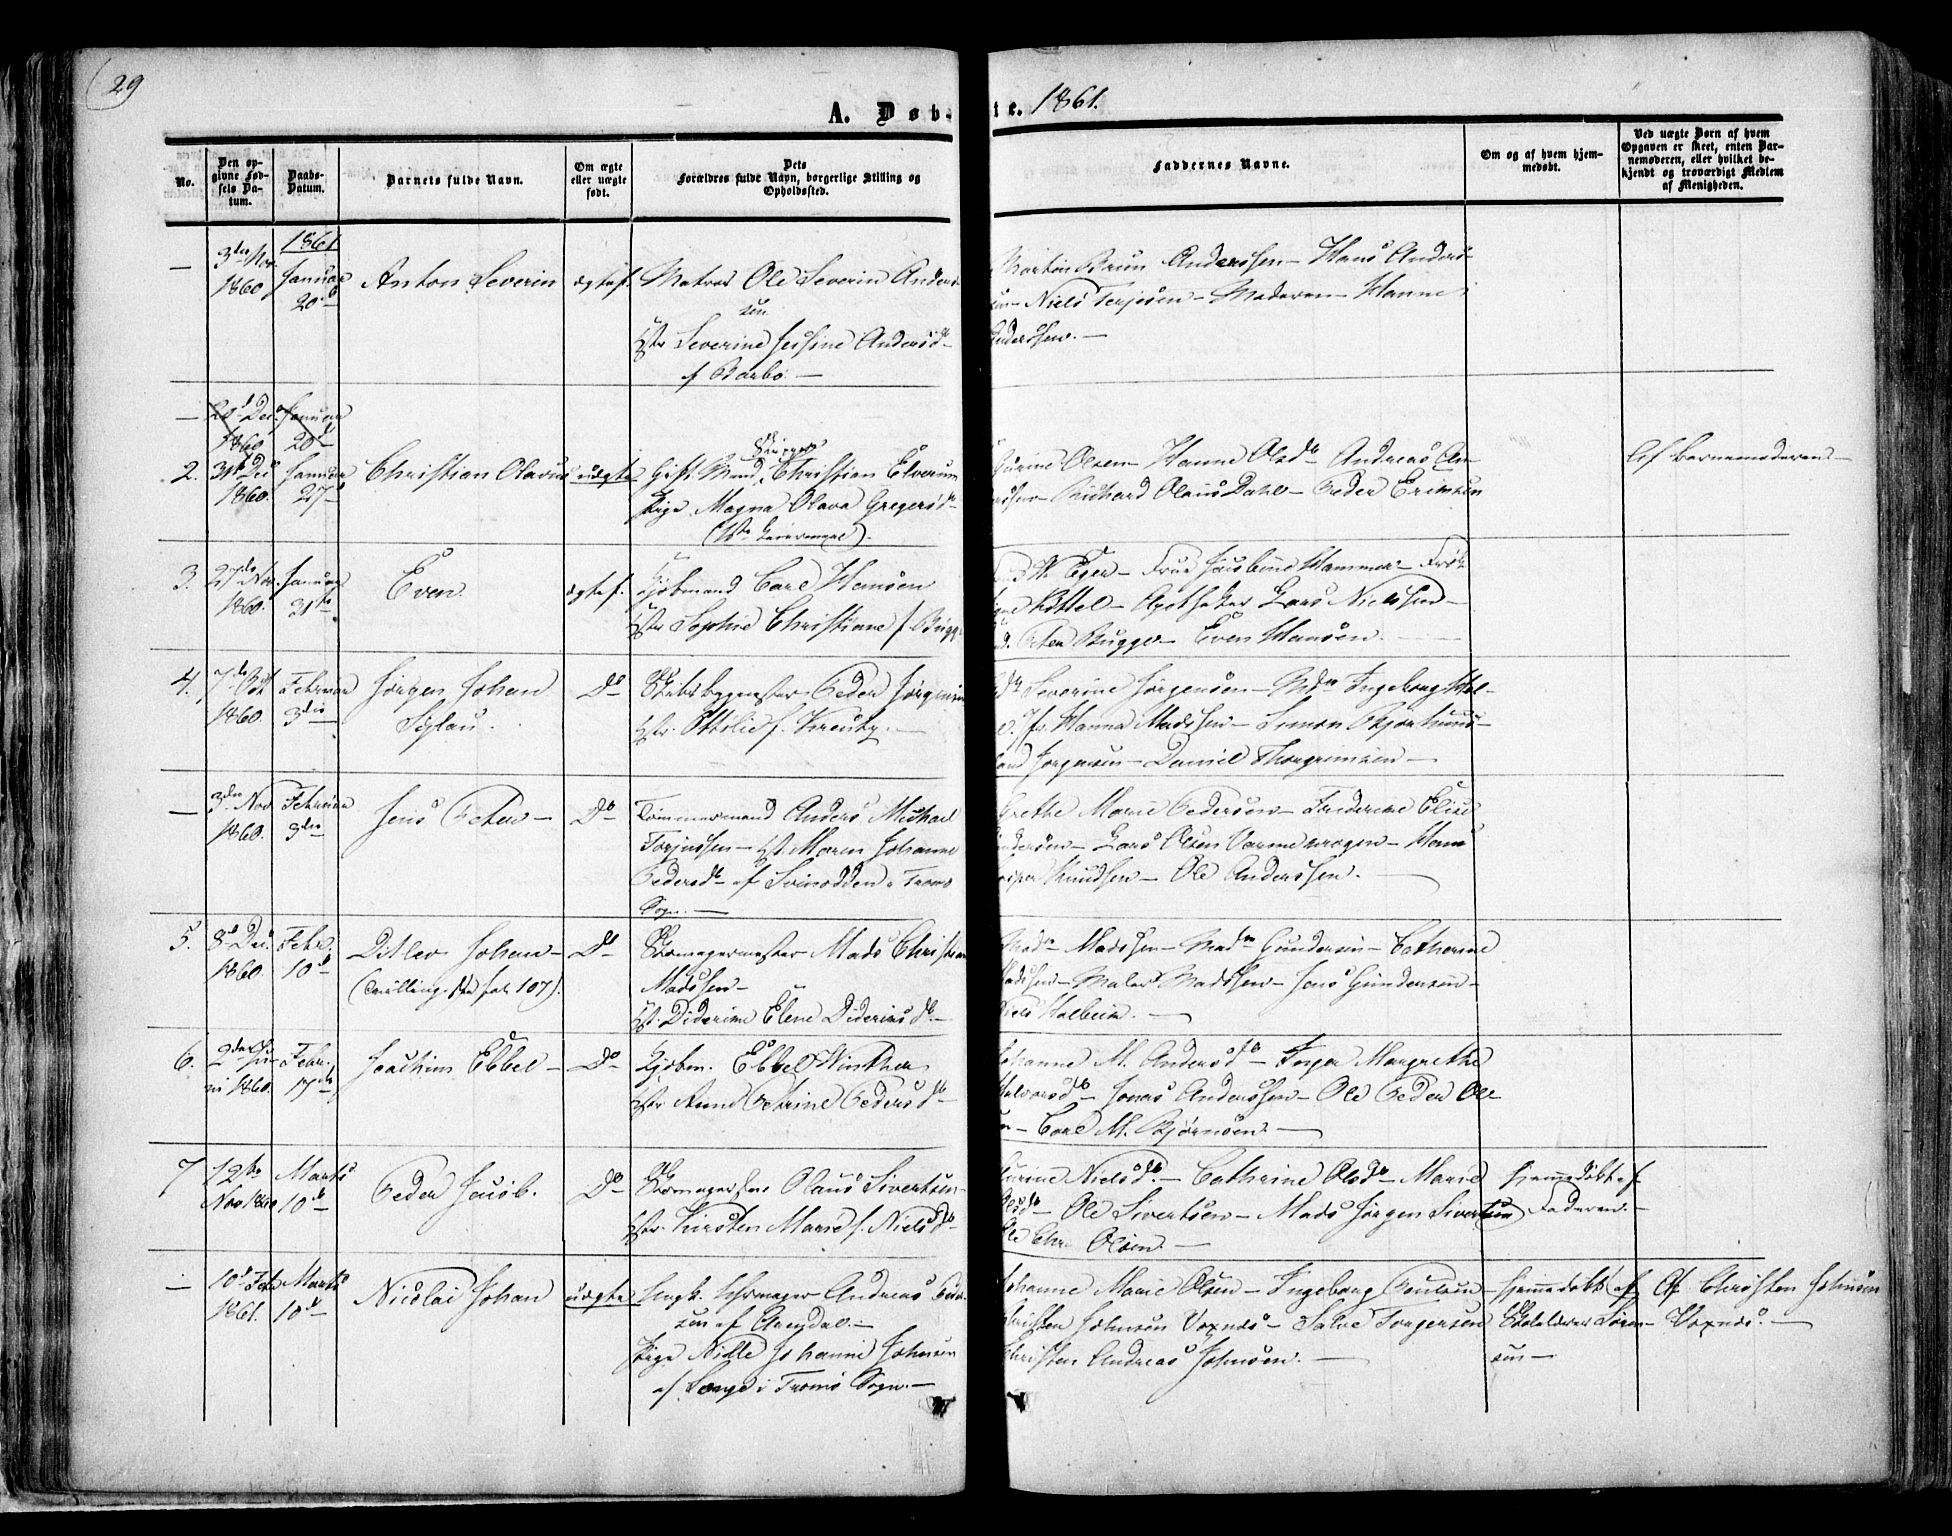 29
A. Døb-
te. 1861.
No.
Den op-
givne Fød-
sels Da-
tum.
Daabs-
Datum.
Barnets fulde Navn.
Om ægte
eller uægte
født.
Dets
Forældres fulde Navn, borgerlige Stilling og
Opholdssted.
Faddernes Navne.
Om og af hvem hjem-
medøbt.
Ved uægte Børn af hvem
Opgaven er skeet, enten Bar-
nemoderen, eller hvilket be-
kjendt og troværdigt Medlem
af Menigheden.
1861
— 3die Nov.
1860
Januar
20d
Anton Severin
ægtef.
Matros Ole Severin Anders-
sen
Hstr Severine Andersd
f Barbo. —
Martin Bruun Anderssen — Hans Anders-
sen — Niels Terjesen — Moderen — Hanne
Anderssen. —
— 20d Dec.
1860
Januar
20d
2. 31te Dec
1860.
Januar
27
Christian Olavus
uægte
Skipper
Gift Mand, Christian Elverum
Pige Magna Olava Gregersd
(1ste Leiermaal).
Olsen — Hanne Olsd — Andreas
Richard Olaus Dahl — Peder Eriksen
Af Barnemoderen. —
3. 27de Nov.
1860.
Januar
31te
Even
ægtef.
Kjøbmand Carl Hansen
Hstr Sophie Christiane f. Bugge
Eger — Frue Jacobine Hammer — Frøk
Kittel — Apotheker Lars Nielssen —
Peter Bugge — Even Hansen.
4. 7de Oct
1860.
Februar
3die
Jørgen Johan
Sylau.
Do
Skibsbygmester Peder Jørgensen
Hstr. Ottilie f. Kreutz. —
Severine Jørgensen — Mdm Ingeborg
Hanna Madssen — Simon Bjorhuus —
Jørgensen — Daniel Thorgrimsen —
— 3die Nov
1860.
Februar
3die
Jens Peter —
Do
Tømmermand Anders Michael
Torjussen — Hst Maren Johanne
Pedersd — af Svinodden i Tromø
Sogn. —
Grethe Marie Pedersen — Fredrikke Elise
Pedersen — Lars Olsen — Hans
Knudsen — Ole Anderssen. —
5. 8d Dec.
1860.
Febr.
10d
Ditlev Johan —
(Tvilling. See fol. 107).
Do
Skomagermester Mads Christian
Madssen —
Hst. Diderikke Elene Dideriksd —
Madm Madssen — Madm Gundersen — Cathrine
Madssen — Maler Madssen — Jens Gundersen —
Niels Holbein. —
6. 2den Ju-
ni 1860.
Febr.
17de
Joachim Ebbel —
Do
Kjøbm. Ebbel Winther
Hstr Anne Petrine Pedersd —
Johanne M. Andersd — Inger Margrethe
Halvorsd — Jonas Anderssen — Ole Peder Ol-
sen — Carl M. Bjørnsen. —
7 12te
Nov 1860
Marts
10d
Peder Jacob.
Do
Skomagersv. Olaus Sivertsen —
Hstr. Kirsten Marie f. Nielsd —
Nielsd. — Cathrine Olsd — Marie
Olsd — Ole Sivertsen — Mads Jørgen Sivertsen
Ole Chr. Olsen. —
Hjemmedøbt af
Faderen. —
— 10d Febr
1861.
Marts
10d
Nicolai Johan
uægte
Ungk. Skomager Andreas
sen af Arendal. —
Pige Nille Johanne Johnsen
af Songe i Tromø Sogn. —
Johanne Marie Olsen — Ingeborg Poulsen —
Christen Johnsen Voxnæs — Salve Torgersen
Christen Andreas Johnsen. —
Hjemmedøbt af
Skolelærer Søren-
sen —
Af Christen Johnsen
Voxnæs. —